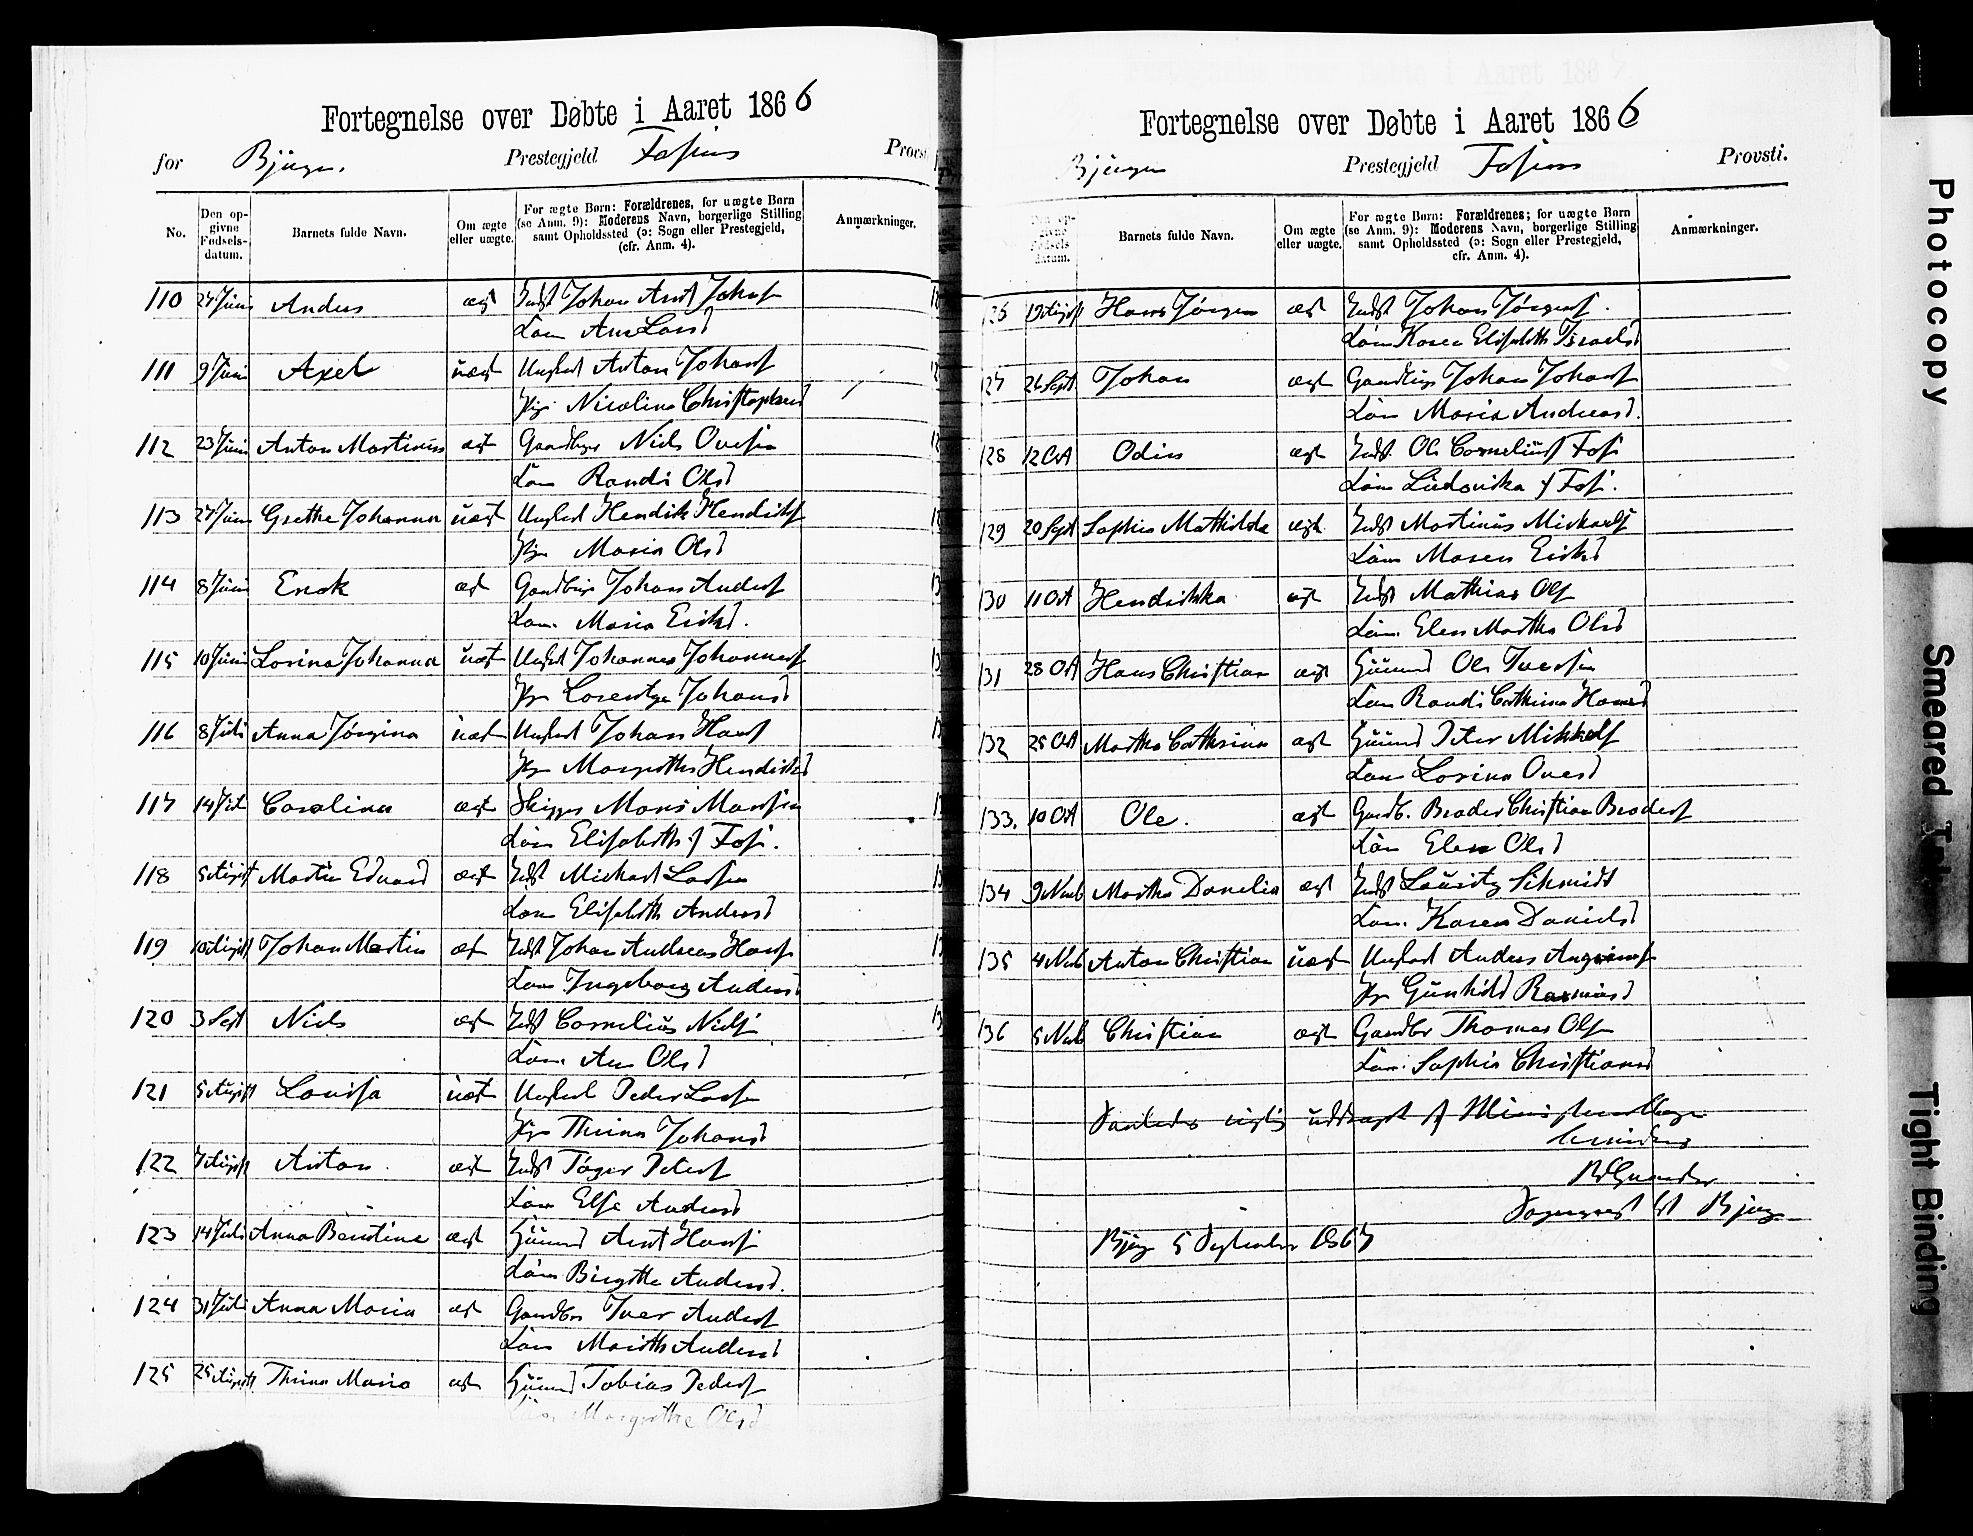 Fortegnelse over Døbte i Aaret 1866
for Bjugn. Prestegjeld Fosens Provsti
No.
Den opgivne Fødselsdatum.
Barnets fulde Navn.
Om ægte eller uægte.
For ægte Børn: Forældrenes, for uægte Børn (se Anm. 9): Moderens Navn, borgerlige Stilling samt Opholdssted (ↄ: Sogn eller Prestegjeld, cfr. Anm. 4).
Anmærkninger.
110 24 Juni Anders ægt Indst Johan Arnt Johns
Kone Ane Larsd
111 9 Juni Axel uægt Ungkarl Anton Johans
Pige Nicolina Christophersd
112 23 Juni Anton Martinus ægt Gaardbr Niels Ovesen
Kone Randi Olsd
113 27 Juni Grethe Johanna uægt Ungkarl Hendrik Hendriks
Pige Maria Olsd
114 8 Juni Enok ægt Gaardbrug Johan Anders
Kone Maria Eriksd.
115 10 Juni Lorina Johanna uægt Ungkarl Johannes Johannes
Pige Lorentza Johansd
116 8 Juli Anna Jørgina uægt Ungkarl Johan Hans
Pige Margrethe Hendriksd
117 14 Juli Carolina ægt
Kone Elisabeth f Fos.
118 5 August Martin Edvard ægt Indst Mickael Larsen
Kone Elisabeth Andersd
119 10 August Johan Martin æt Indst Johan Andreas Hans
Kone Ingeborg Andersd
120 3 Sept Niels ægt Indst Cornelius Niels
Kone Ane Olsd
121 5 August Lovisa uægt Ungkarl Peder Larsen
Pige Thrina Johansd
122 7 August Anton ægt Indst Peters
Kone Else Andersd
123 14 Juli Anna Berntine ægt Huusmd Arnt Hans
Kone Birgitte Andersd.
124 31 Juli Anna Maria ægt Gaardbr Iver Anders
Kone Marith Andersd
125 25 August Thrina Maria ægt Huusmd Tobias Peders
Kone Margrethe Olsd
Fortegnelse over Døbte i Aaret 1866
Bjugn Prestegjeld Fosens Provsti.
Den opgivne Fødselsdatum.
Barnets fulde Navn.
Om ægte eller uægte.
For ægte Børn: Forældrenes; for uægte Børn (se Anm. 9): Moderens Navn, borgerlige Stilling samt Opholdssted (ↄ: Sogn eller Prestegjeld, cfr. Anm. 4).
Anmærkninger.
126 19 August Hans Jørgen ægt Indst Johan Jørgens.
Kone Karen Elisabeth Israelsd
127 26 Sept Johan ægt Gaardbrug Johan Johans
Kone Maria Andreasd.
128 12 Oct Odin ægt Indst Ole Cornelius Fos
Kone Ludovika f Fos.
129 20 Sept Sophie Mathilde ægt Indst Martinus Mickaels
Kone Maren Eriksd
130 11 Oct Hendrikka ægt Indst Mathias Ols
Kone Elen Martha Olsd
131 28 Oct Hans Christian ægt Huusmd Ole Iversen
Kone Randi Cathrina Hansd
132 25 Oct Martha Cathrina ægt Huusmd Peter Mikkels
Kone Lorina Ovesd
133. 10 Oct Ole. ægt Gardb. Broder Christian Broders
Kone Elen Olsd
134 9 Novb Martha Danelia ægt Indst Lauritz Schmidt
Kone Karen Danielsd
135 4 Novb Anton Christian uægt Ungkarl Anders
Pige Gunhild Rasmusd
136 5 Novb Christian ægt Gaardbr Thomas Ols
Kone Sophia Christiansd
Saaledes rigtig uddraget af Ministerialbogen
Sogneprest til Bjugn
Bjugn 5 September 1867
Photocopy
Smeared Text
Tight Binding